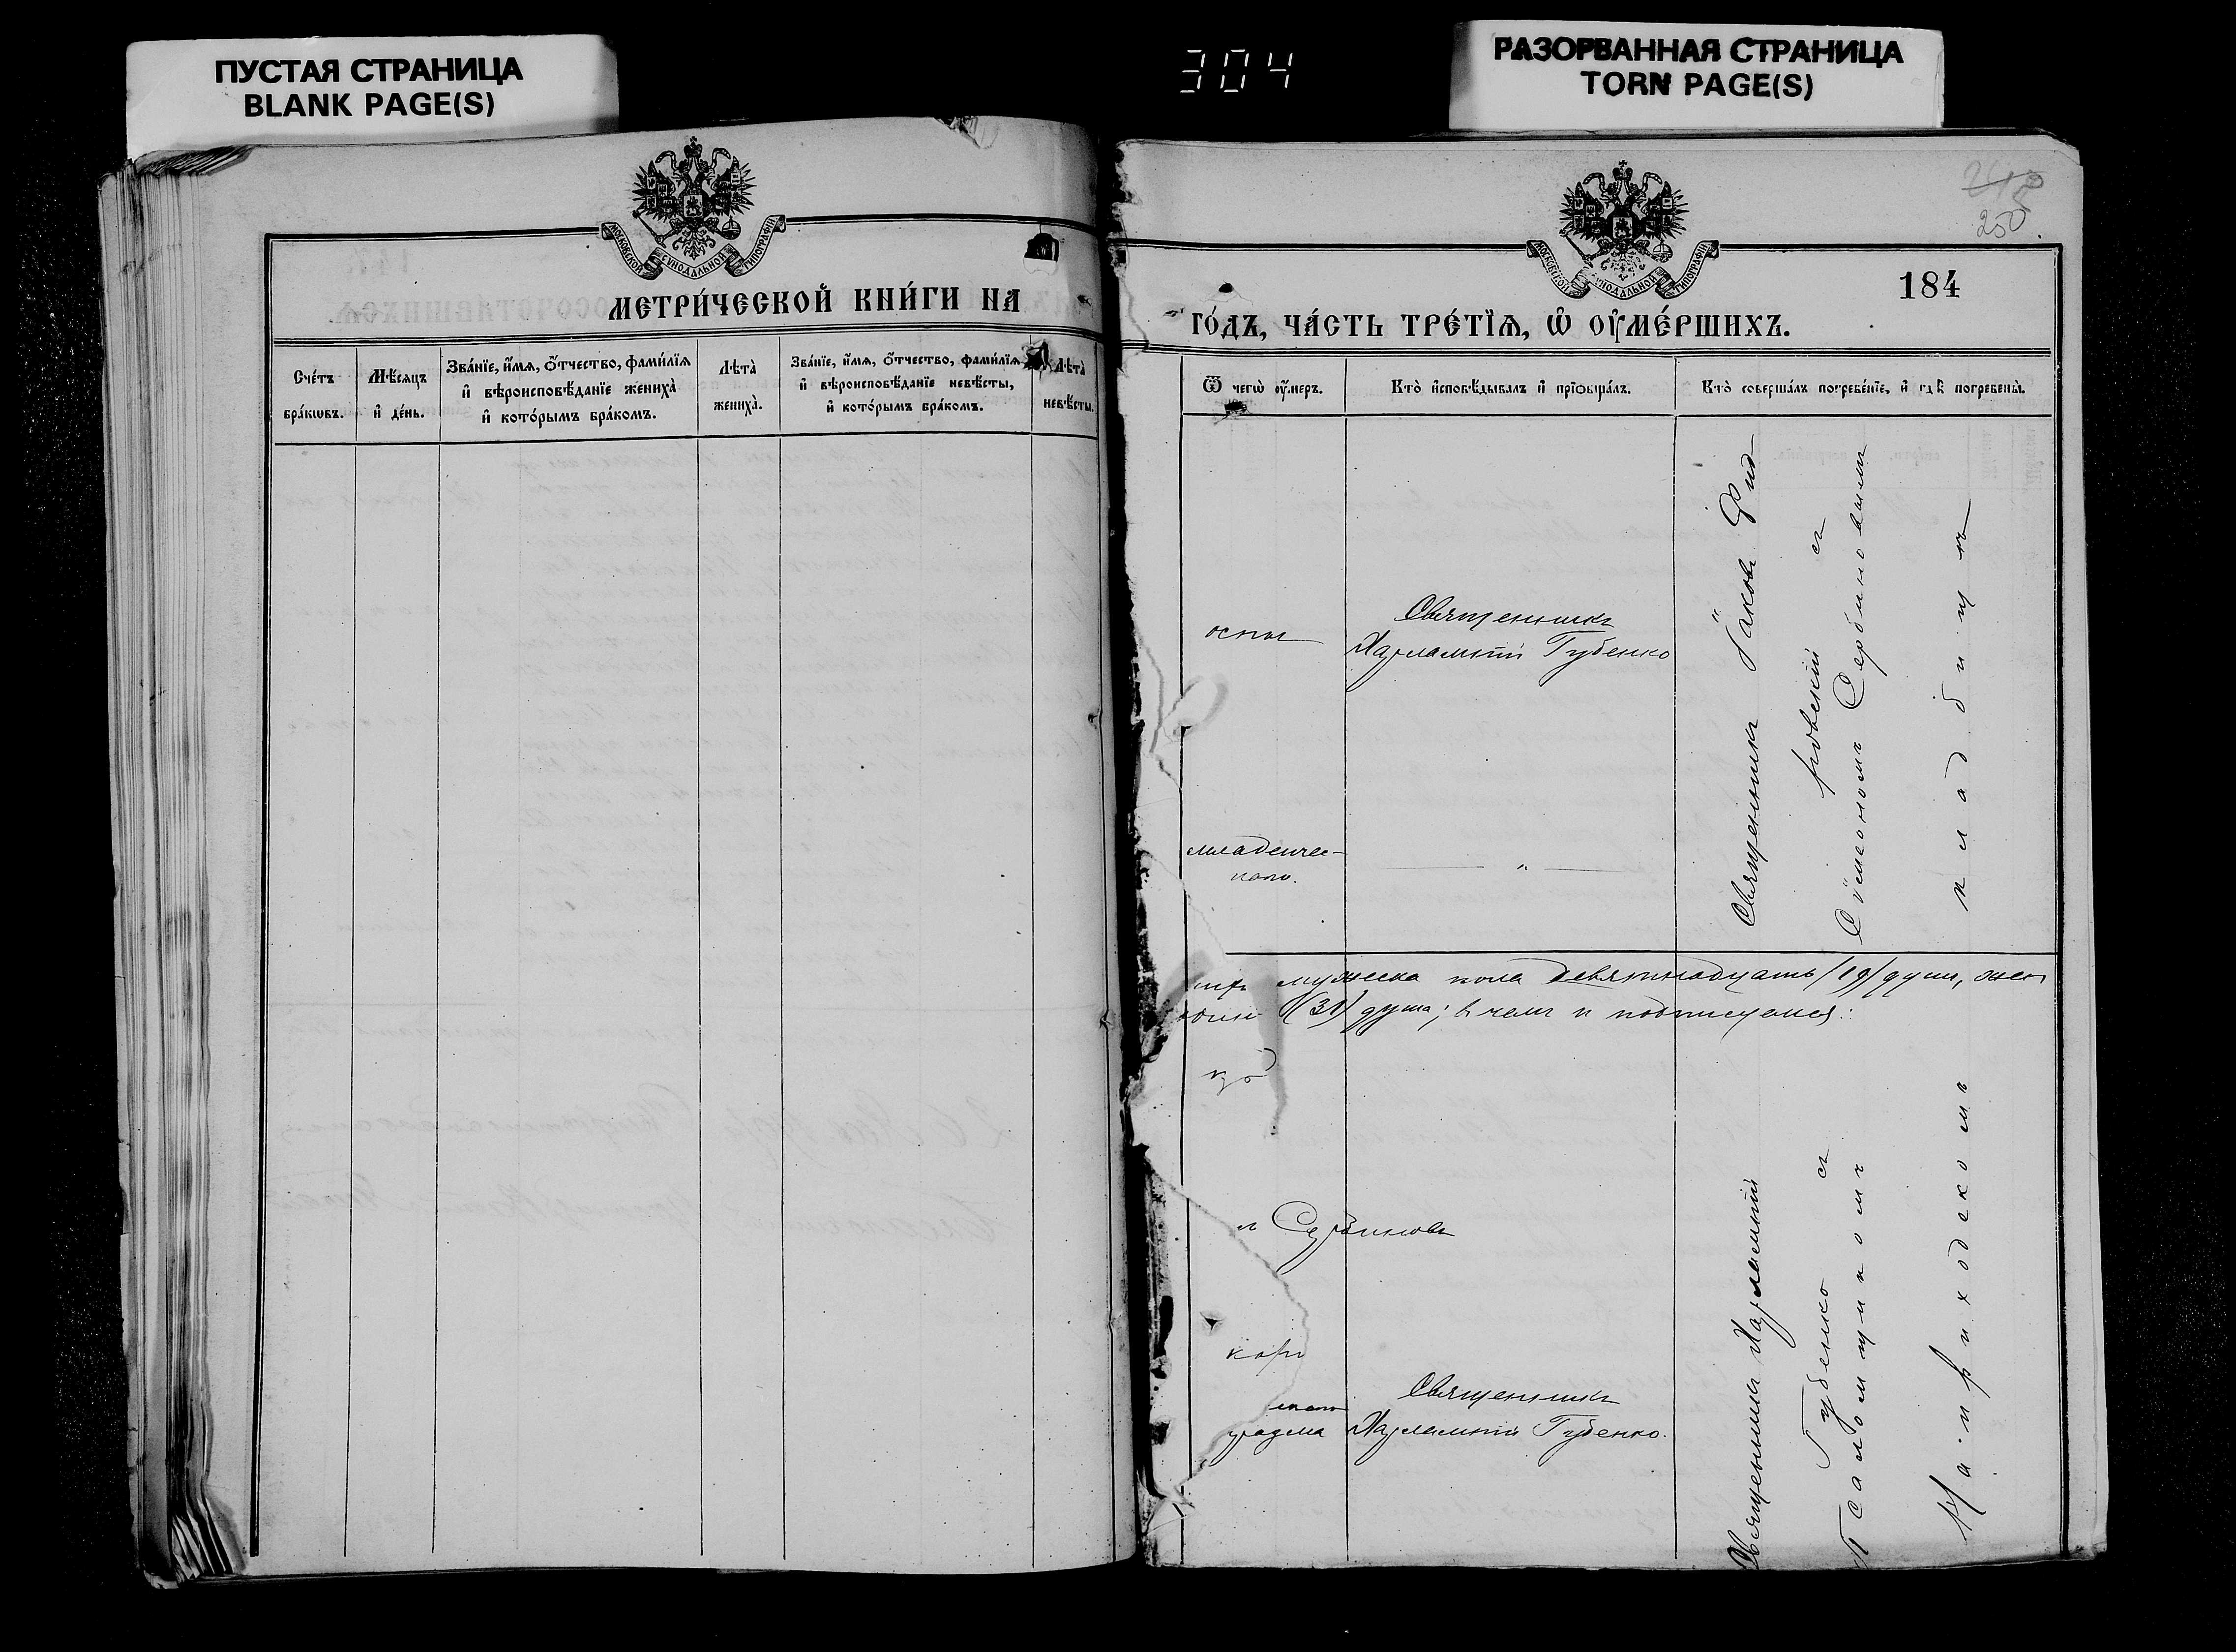 ПУСТАЯ СТРАНИЦА
BLANK PAGE(S)
304
РАЗОРВАННАЯ СТРАНИЦА
TORN PAGE(S)
МОСКОВСКОЙ СѴНОДАЛЬНОЙ ТИПОГРАФІИ
МЕТРИ́ЧЕСКОЙ КНИ́ГИ НА
Сче́тъ бра́кѡвъ.
Мѣ́сяцъ и҆ де́нь.
Зва́нїе, и҆́мѧ, ѻ҆́тчество, фами́лїѧ
и҆ вѣроисповѣ́данїе жениха̀
и҆ кото́рымъ бра́комъ.
Лѣ́та̀ жениха̀.
Зва́нїе, и҆́мѧ, ѻ҆́тчество, фами́лїѧ
и҆ вѣроисповѣ́данїе невѣ́сты,
и҆ кото́рымъ бра́комъ.
Лѣ́та̀ невѣ́сты.
250
МОСКОВСКОЙ СѴНОДАЛЬНОЙ ТИПОГРАФІИ
184
ГО́ДЪ, ЧА́СТЬ ТРЕ́ТЇѦ, Ѡ҆ ОУ҆МЕ́РШИХЪ.
Ѿ чегѡ̀ ᲂу҆́меръ.
Кто̀ и҆сповѣ́дывалъ и҆ прїѡбща́лъ.
Кто̀ соверша́лъ погребе́нїе, и҆ гдѣ̀ погребены̀.
оспы
Священникъ
Харлампій Губенко
Священникъ Іаковъ Фид
ровскій съ
Сѵмеономъ Сербиновымъ
кладбищѣ
младенчес-
каго.
мужеска пола девятнадцать (19) душъ, жен
(31) душа; въ чемъ и подписуемся:
Сербиновъ
Священникъ
Харлампій Губенко.
Священникъ Харлампій
Губенко съ
Псаломщикомъ
На приходскомъ